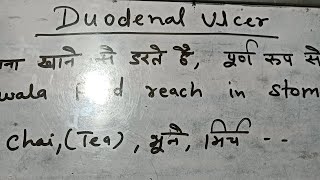 Duodenal Ulcer
ना खाने से डरते हैं, पूर्ण रुप से
wala food reach in stom
Chai, (Tea), भूने, मिर्च --